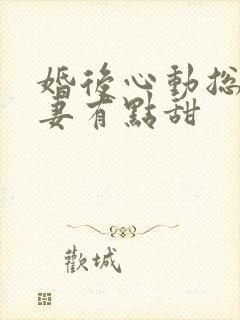 婚後心動總
妻有點甜
歡城